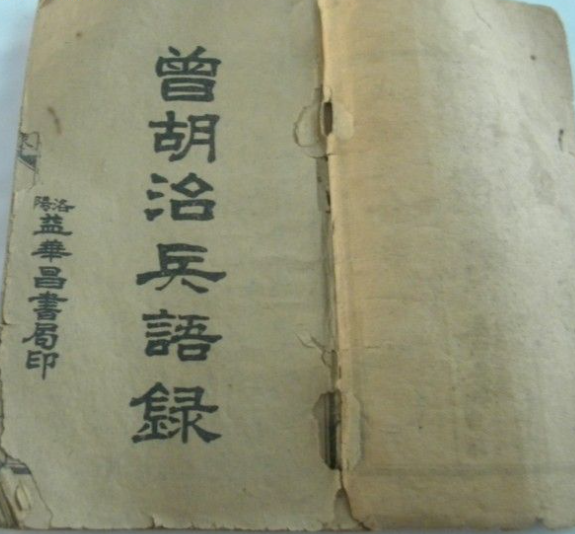 曾胡治兵語録
洛陽
益華昌書局印